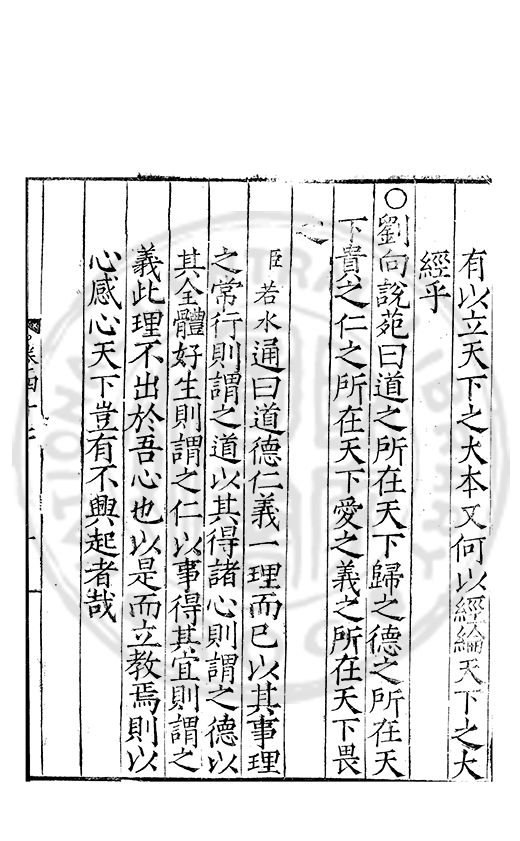 有以立天下之大本又何以經綸天下之大
經乎
○劉向說苑曰道之所在天下歸之德之所在天
下貴之仁之所在天下愛之義之所在天下畏
之
臣若水通曰道德仁義一理而已以其事理
之常行則謂之道以其得諸心則謂之德以
其全體好生則謂之仁以事得其宜則謂之
義此理不出於吾心也以是而立教焉則以
心感心天下豈有不興起者哉